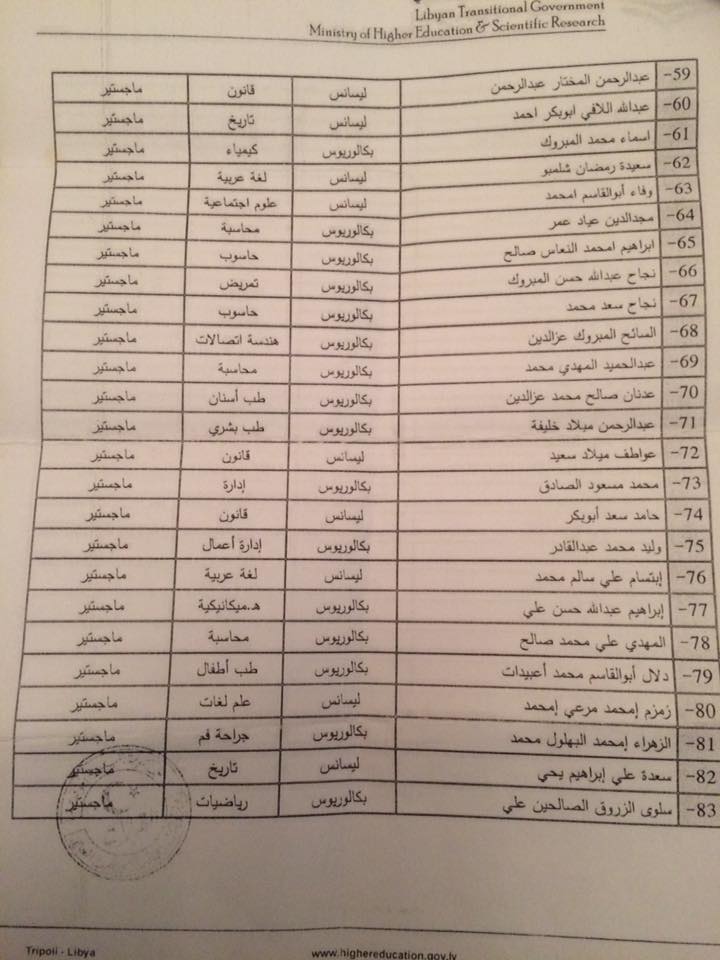 Libyan Transitional Government
Ministry of Higher Education & Scientific Research
59- عبدالرحمن المختار عبدالرحمن ليسانس قانون ماجستير
60- عبدالله اللافي ابوبكر احمد ليسانس تاريخ ماجستير
61- اسماء محمد المبروك بكالوريوس كيمياء ماجستير
62- سعيدة رمضان شلمبو ليسانس لغة عربية ماجستير
63- وفاء أبوالقاسم امحمد ليسانس علوم اجتماعية ماجستير
64- مجدالدين عياد عمر بكالوريوس محاسبة ماجستير
65- ابراهيم امحمد النعاس صالح بكالوريوس حاسوب ماجستير
66- نجاح عبدالله حسن المبروك بكالوريوس تمريض ماجستير
67- نجاح سعد محمد بكالوريوس حاسوب ماجستير
68- السائح المبروك عزالدين بكالوريوس هندسة اتصالات ماجستير
69- عبدالحميد المهدي محمد بكالوريوس محاسبة ماجستير
70- عدنان صالح محمد عزالدين بكالوريوس طب أسنان ماجستير
71- عبدالرحمن ميلاد خليفة بكالوريوس طب بشري ماجستير
72- عواطف ميلاد سعيد ليسانس قانون ماجستير
73- محمد مسعود الصادق بكالوريوس إدارة ماجستير
74- حامد سعد أبوبكر ليسانس قانون ماجستير
75- وليد محمد عبدالقادر بكالوريوس إدارة أعمال ماجستير
76- إبتسام علي سالم محمد ليسانس لغة عربية ماجستير
77- إبراهيم عبدالله حسن علي بكالوريوس هـ.ميكانيكية ماجستير
78- المهدي علي محمد صالح بكالوريوس محاسبة ماجستير
79- دلال أبوالقاسم محمد أعبيدات بكالوريوس طب أطفال ماجستير
80- زمزم إمحمد مرعي إمحمد ليسانس علم لغات ماجستير
81- الزهراء إمحمد البهلول محمد بكالوريوس جراحة فم ماجستير
82- سعدة علي إبراهيم يحي ليسانس تاريخ ماجستير
83- سلوى الزروق الصالحين علي بكالوريوس رياضيات ماجستير
Tripoli - Libya www.highereducation.gov.ly